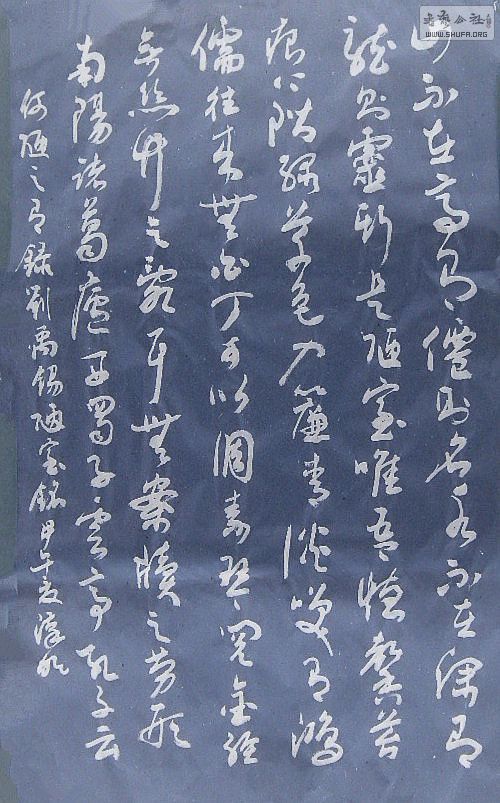 书艺公社
WWW.SHUFA.ORG
山不在高有僊則名水不在深有
龍則靈斯是陋室唯吾德馨苔
痕上階綠草色入簾青談笑有鴻
儒往來無白丁可以調素琴閱金經
无絲竹之亂耳無案牘之勞形
南陽諸葛廬西蜀子雲亭孔子云
何陋之有錄劉禹錫陋室銘甲午夏